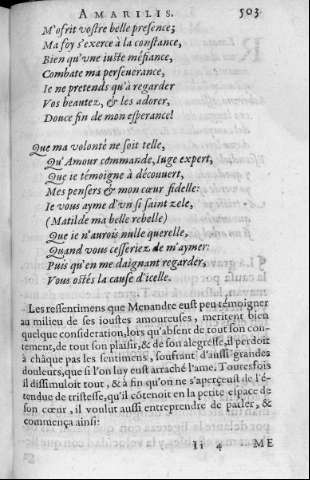 AMARILIS. 503
M'ofrit vostre belle presence;
Ma foy s'exerce à la constance,
Bien qu'vne iuste méfiance,
Combate ma perseuerance,
Ie ne pretends qu'à regarder
Vos beautez, & les adorer,
Douce fin de mon esperance!
Que ma volonté ne soit telle,
Qu'Amour commande, Iuge expert,
Que ie témoigne à découuert,
Mes pensers & mon cœur fidelle:
Ie vous ayme d'vn si saint zele,
(Matilde ma belle rebelle)
Que ie n'aurois nulle querelle,
Quand vous cesseriez de m'aymer:
Puis qu'en me daignant regarder,
Vous ostés la cause d'icelle.
Les ressentimens que Menandre eust peu témoigner
au milieu de ses ioustes amoureuses, meritent bien
quelque consideration, lors qu'absent de tout son con-
tement, de tout son plaisir, & de son alegresse, il perdoit
à châque pas les sentimens, soufrant d'aussi grandes
douleurs, que si l'on luy eust arraché l'ame. Toutesfois
il dissimuloit tout, & à fin qu'on ne s'aperçeust de l'é-
tendue de tristesse, qu'il côtenoit en la petite espace de
son cœur, il voulut aussi entreprendre de parler, &
commença ainsi:
Ii 4 ME